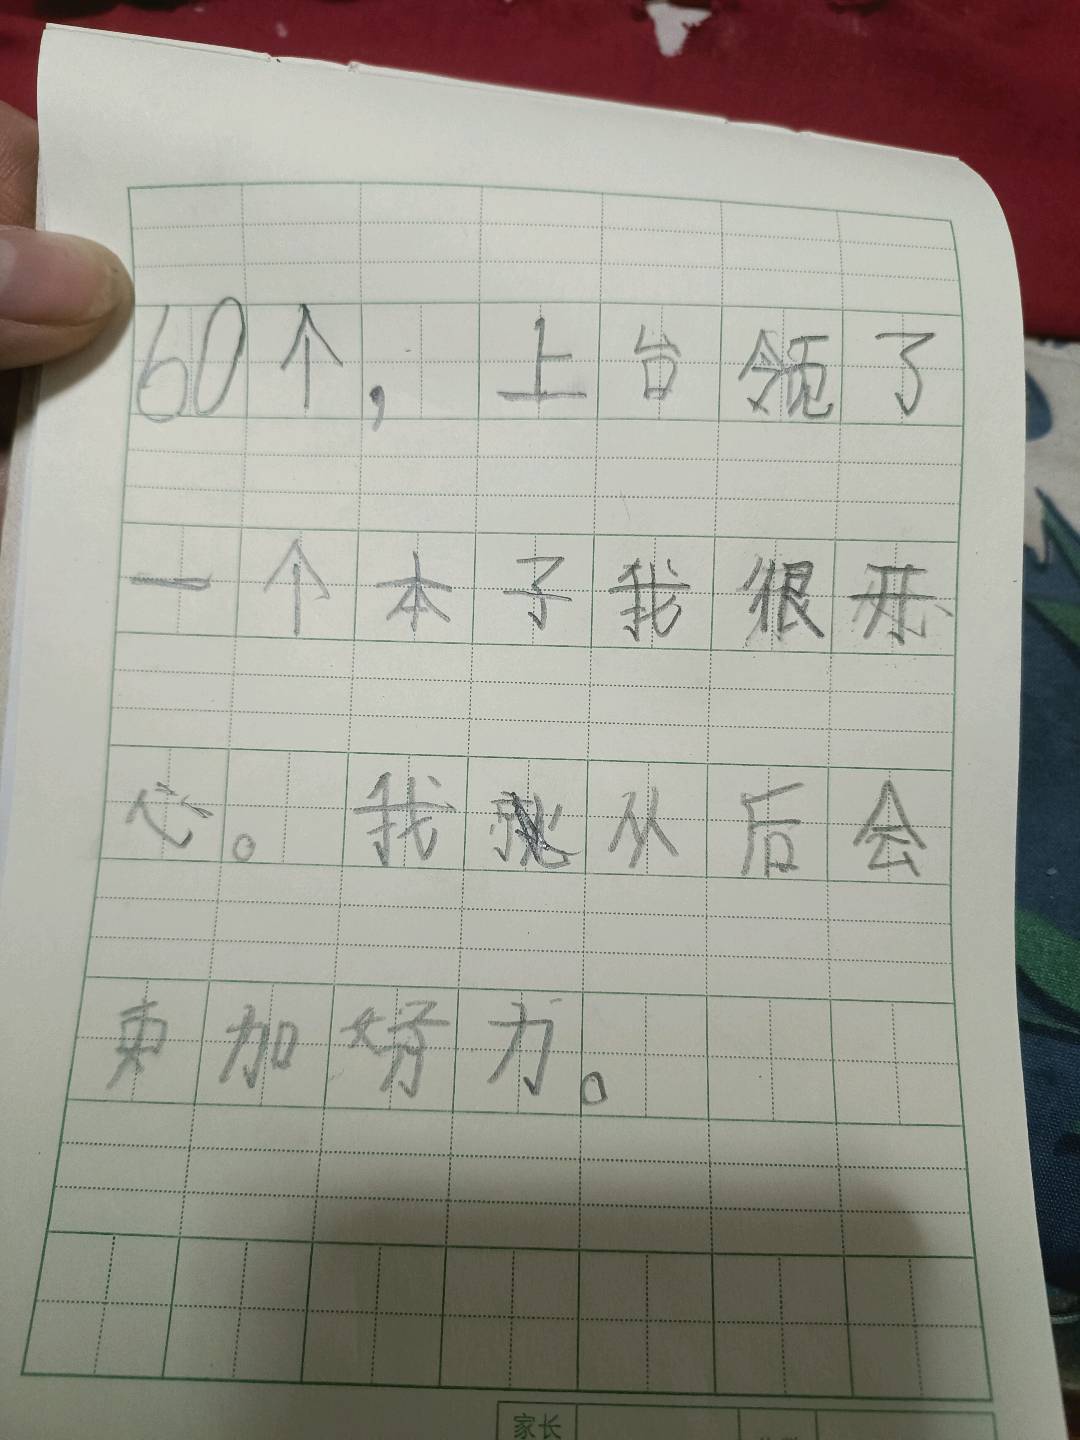 60个，上台领了
一个本子我很开
心。我从后会
更加努力。
家长